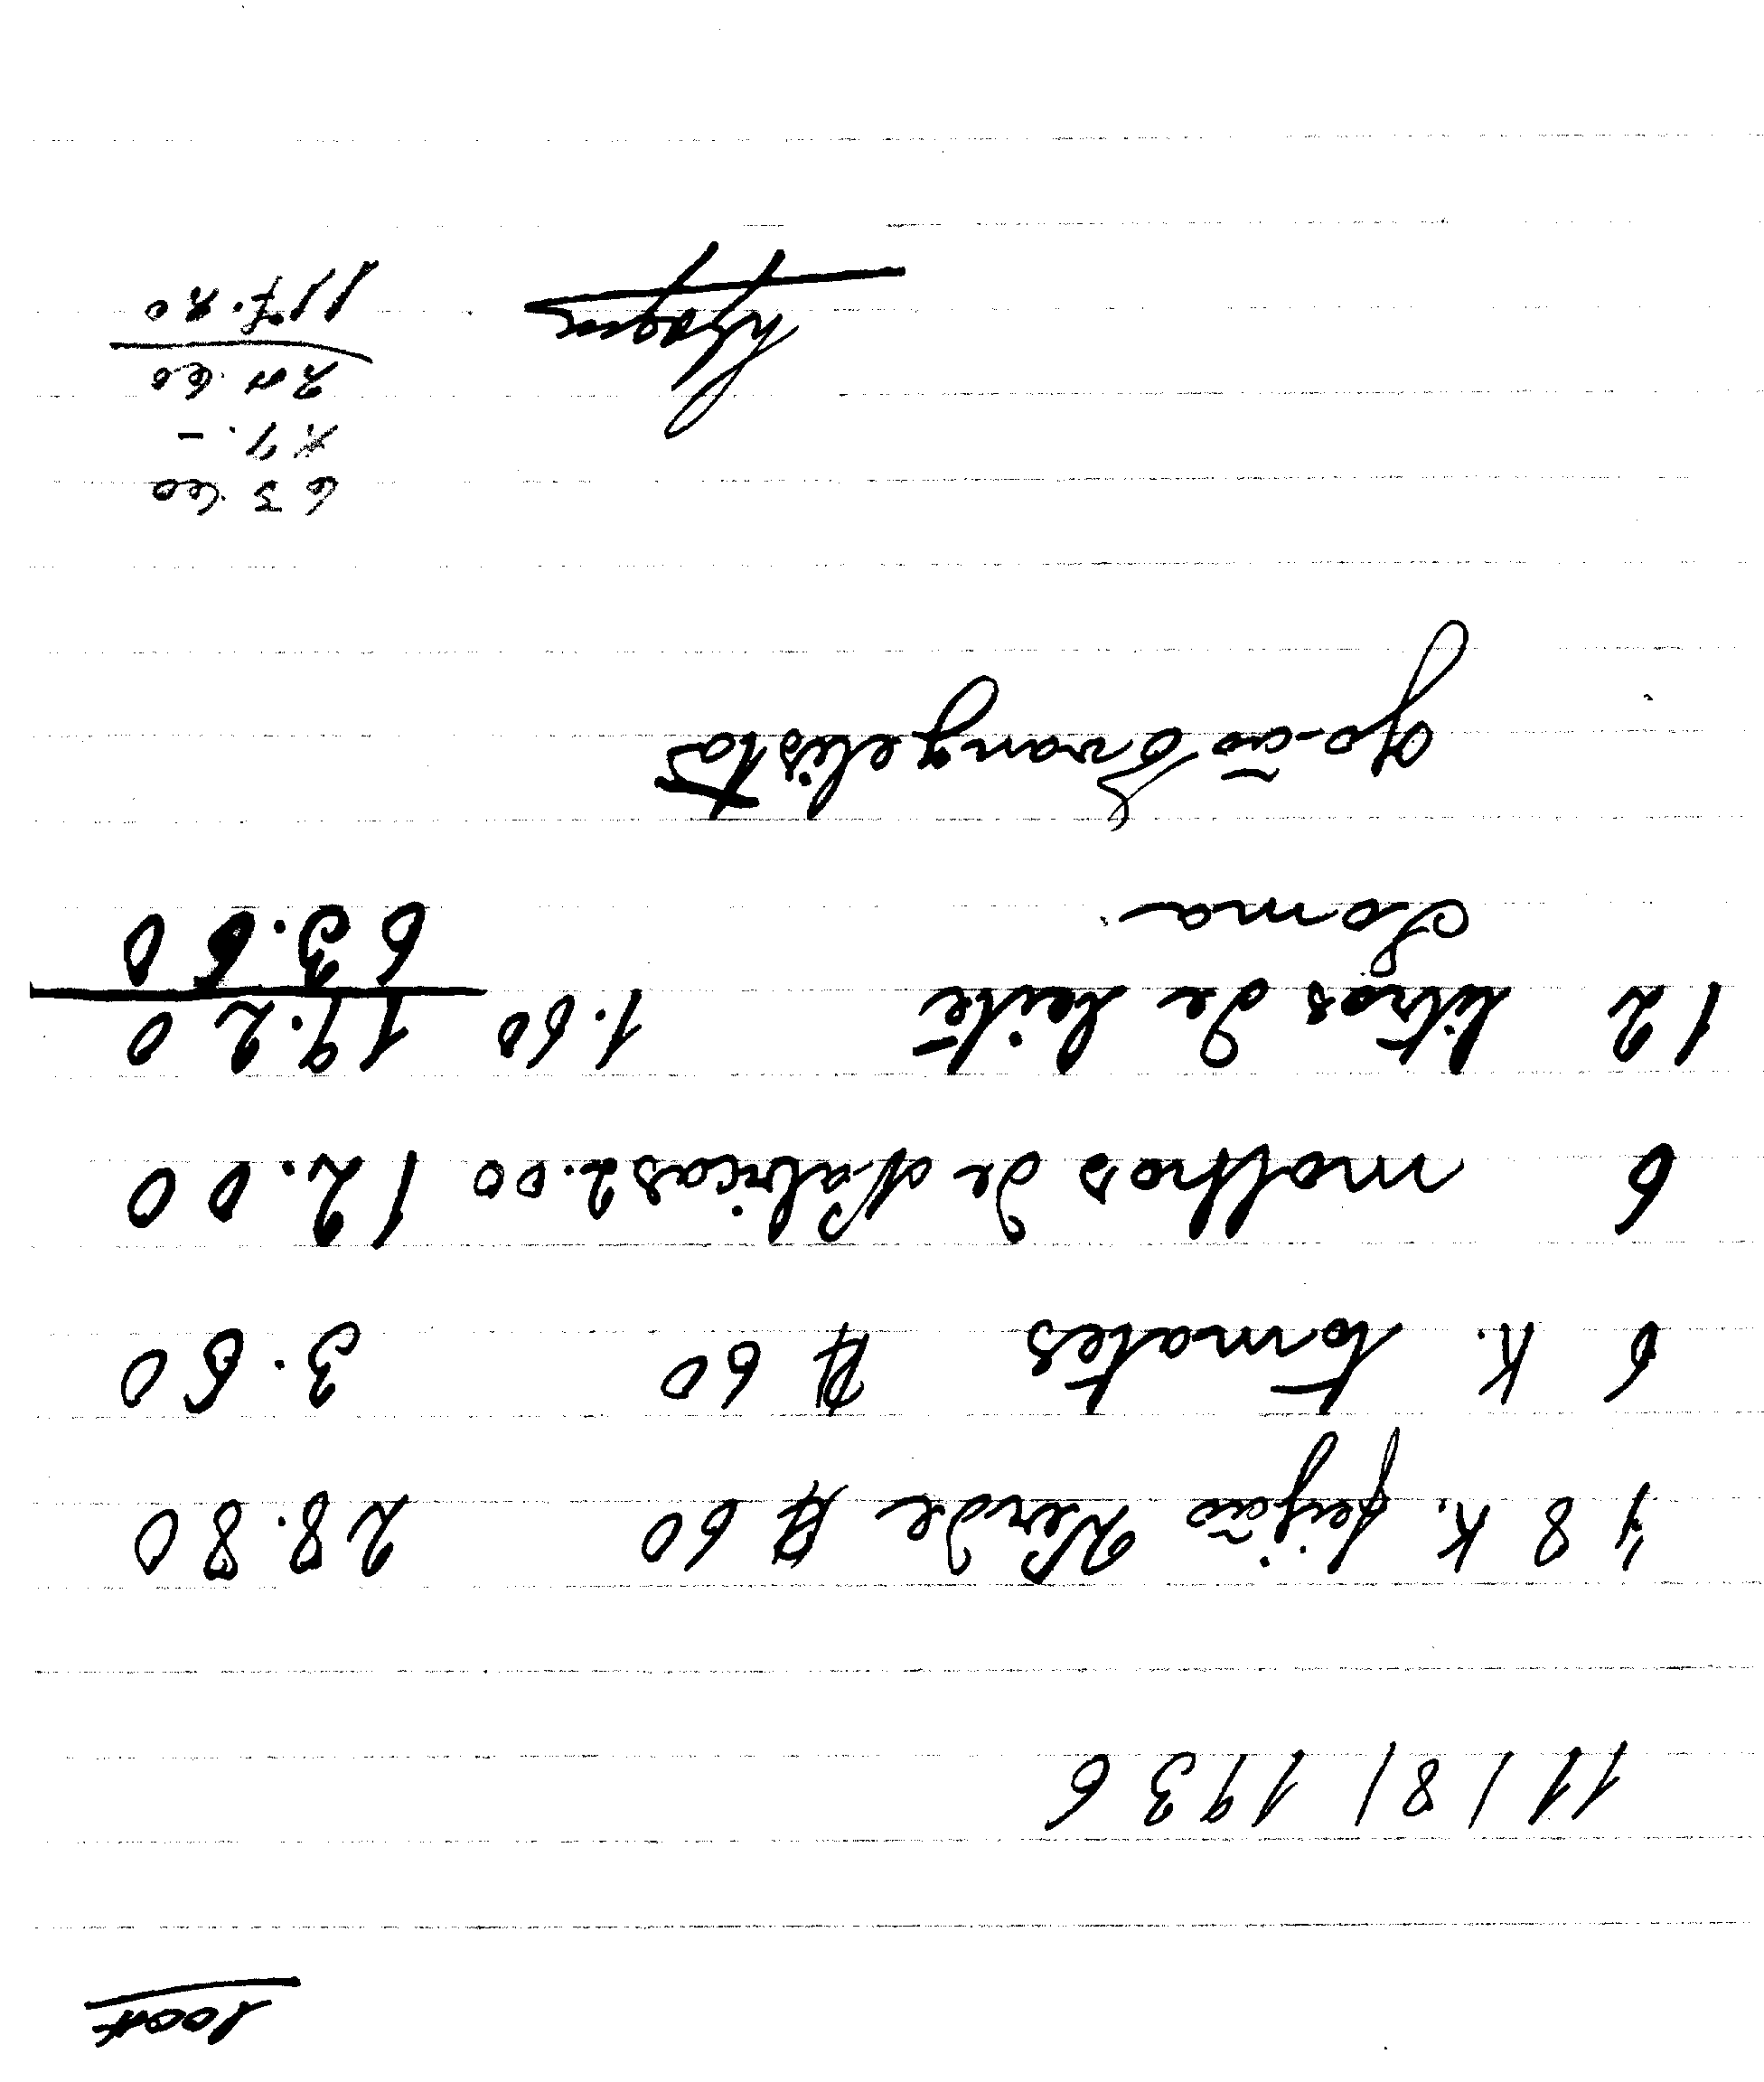 11/8/1936
48 K. feijão Verde $ 60 28.80
6 K. tomates $ 60 3.60
6 molhos de Nabicas 2.00 12.00
12 litros de leite 1.60 19.20
Soma 63.60
João Evangelista
63.60
29.-
24.60
117.20